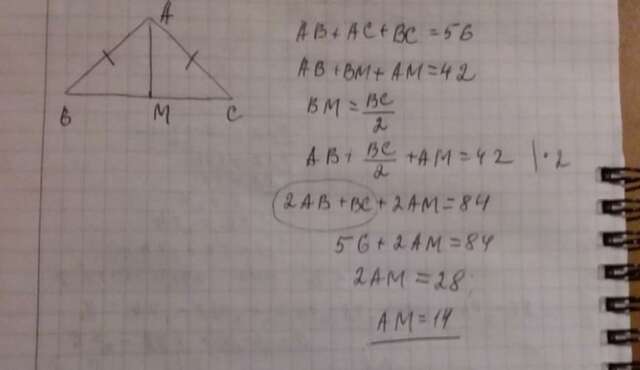 A
B
M
C
AB + AC + BC = 56
AB + BM + AM = 42
BM = BC/2
AB + BC/2 + AM = 42 | · 2
2AB + BC + 2AM = 84
56 + 2AM = 84
2AM = 28
AM = 14